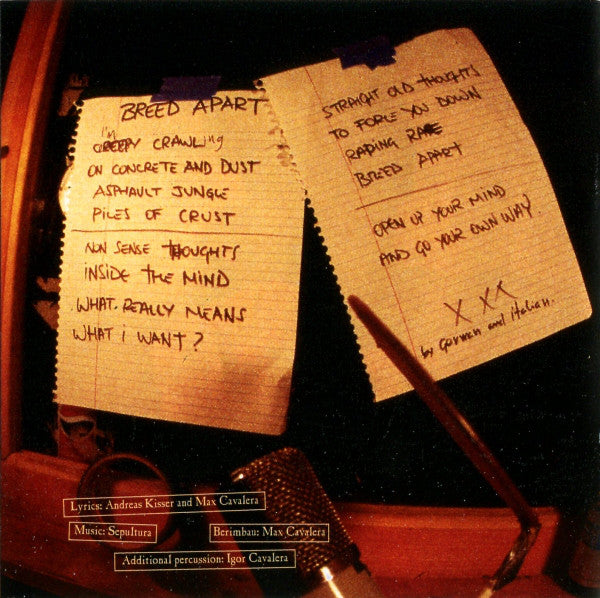 BREED APART
I'm
CREEPY CRAWLing
ON CONCRETE AND DUST
ASPHAULT JUNGLE
PILES OF CRUST
NON SENSE THOUGHTS
INSIDE THE MIND
WHAT REALLY MEANS
WHAT I WANT?
STRAIGHT OLD THOUGHTS
TO FORCE YOU DOWN
RAPING RACE
BREED APART
OPEN UP YOUR MIND
AND GO YOUR OWN WAY.
XXX
by German and italian.
Lyrics: Andreas Kisser and Max Cavalera
Music: Sepultura
Berimbau: Max Cavalera
Additional percussion: Igor Cavalera